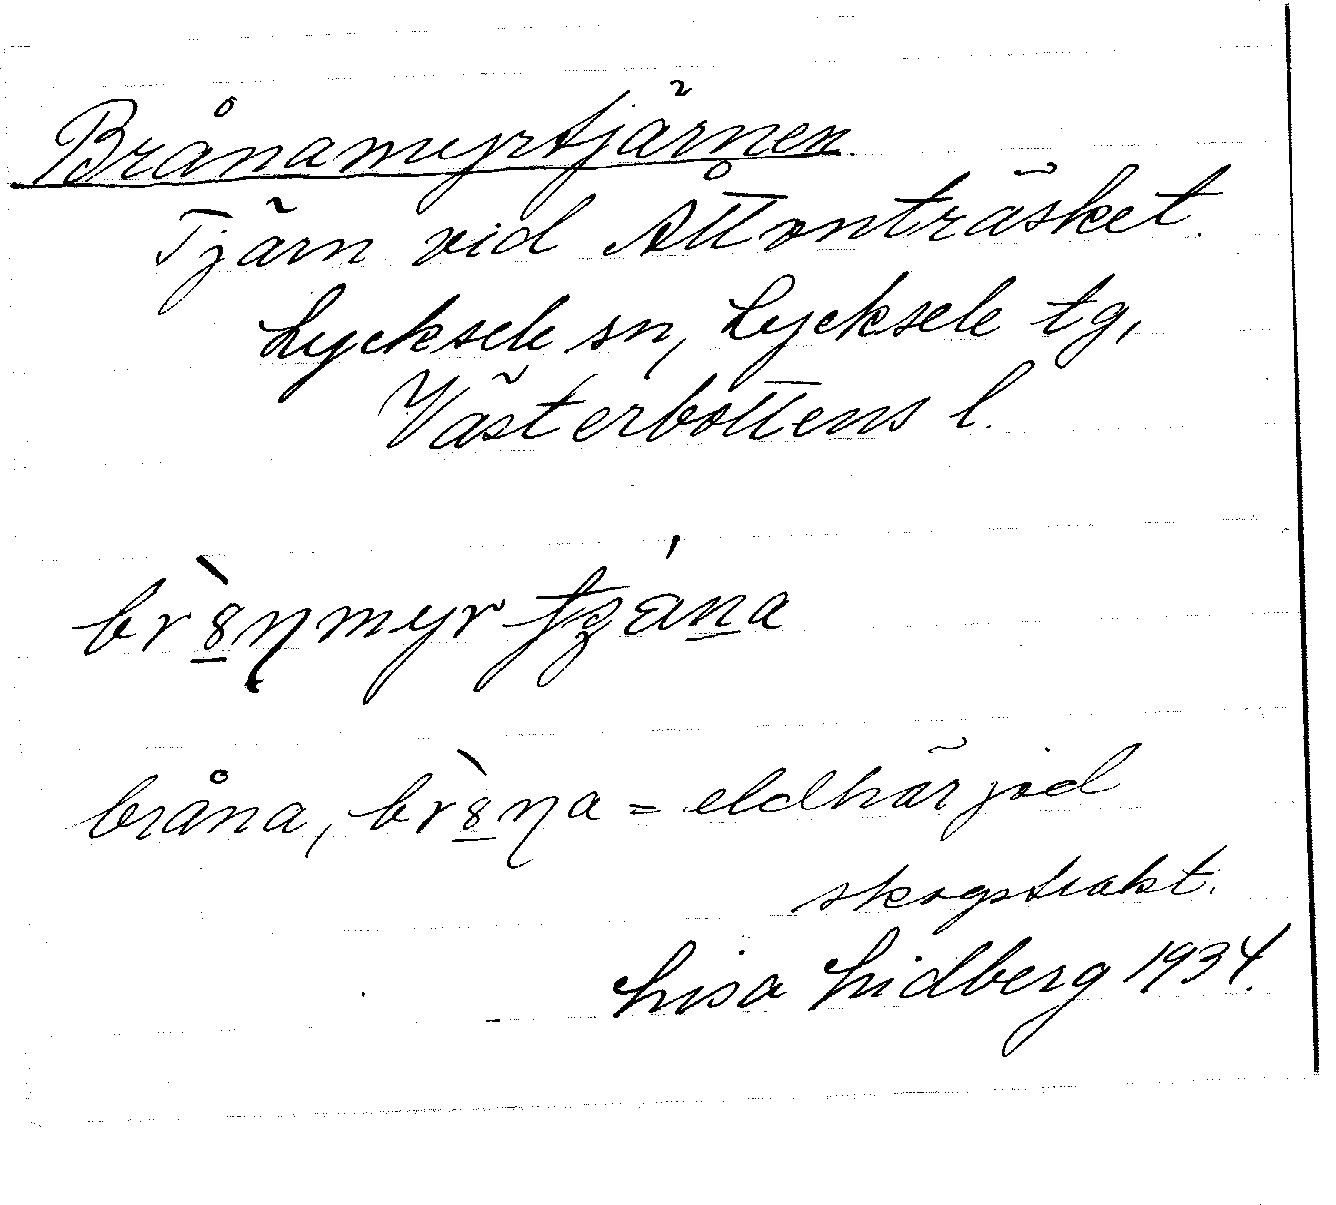 Brånamyrtjärnen.
Tjärn vid Åttonträsket.
Lycksele sn, Lycksele tg,
Västerbottens l.
bråna, = eldhärjad
skogstrakt.
Lisa Lidberg 1934.